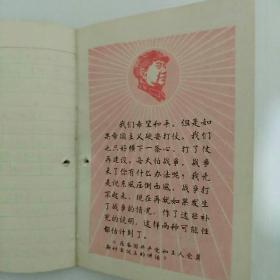 我们希望和平。但是如
果帝国主义硬要打仗，我们
也只好横下一条心，打了仗
再建设。每天怕战争，战争
来了你有什么办法呢？我先
是说东风压倒西风，战争打
不起来，现在再就如果发生
了战争的情况，作了这些补
充的说明，这样两种可能性
都估计到了。
《在各国共产党和工人党莫
斯科会议上的讲话》